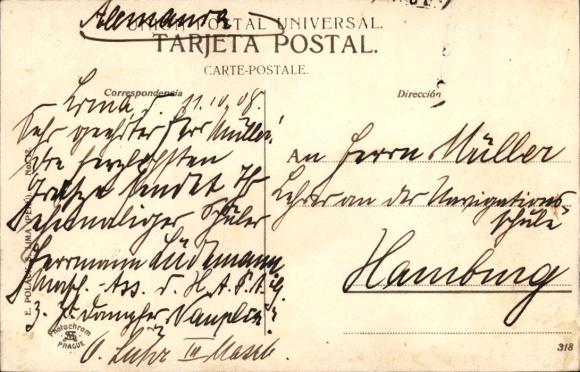 Alemania
UNION POSTAL UNIVERSAL.
TARJETA POSTAL.
CARTE-POSTALE.
Correspondencia
Dirección
Lima, d. 11.10.08.
Sehr geehrter Herr Müller!
Die herzlichsten
Grüße sendet Ihr
ehemaliger Schüler
Herrmann Lüdemann
Masch.-Ass. d. H. A. P. A. G.
z. Zt. Dampfer
O. Luhr III Masch.
An Herrn Müller
Lehrer an der Navigations
schule
Hamburg
E. POLACK LIMA (PERÚ)
Photochrom
PRAGUE
318